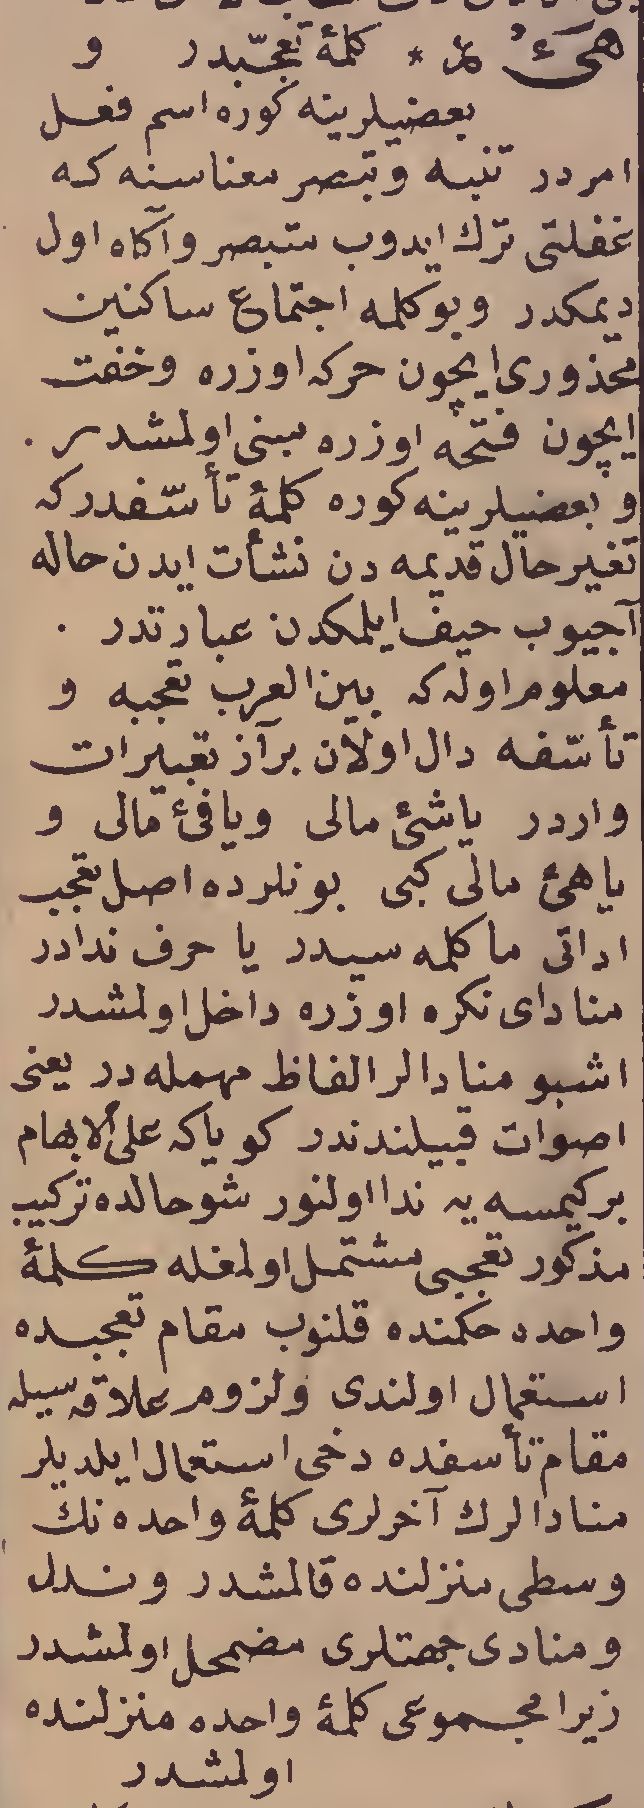 هَیْءُ * كلمۀ تعجّبدر و
بعضیلرینه كوره اسم فعل
امردر تنبه و تبصر معناسنه كه
غفلتی ترك ایدوب متبصر و آكاه اول
دیمكدر و بو كلمه اجتماع ساكنین
محذوری ایچون حركه اوزره و خفت
ایچون فتحه اوزره مبنی اولمشدر .
و بعضیلرینه كوره كلمۀ تأسّفدر كه
تغیر حال قدیمه دن نشأت ایدن حاله
آجیوب حیف ایلمكدن عبارتدر .
معلوم اوله كه بین العرب تعجبه و
تأسّفه دال اولان برآز تعبیرات
واردر یاشئ مالی و یافئ مالی و
یاهئ مالی كبی بونلرده اصل تعجب
اداتی ما كلمه سیدر یا حرف ندادر
منادای نكره اوزره داخل اولمشدر
اشبو منادالر الفاظ مهمله در یعنی
اصوات قبیلندندر كویا كه علی الابهام
بر كیمسه یه ندا اولنور شو حالده تركیب
مذكور تعجبی مشتمل اولمغله كلمۀ
واحده حكمنده قلنوب مقام تعجبده
استعمال اولندی و لزوم علاقه سیله
مقام تأسفده دخی استعمال ایلدیلر
منادالرك آخرلری كلمۀ واحده نك
وسطی منزلنده قالمشدر و
و منادی جهتلری مضمحل اولمشدر
زیرا مجموعی كلمۀ واحده منزلنده
اولمشدر